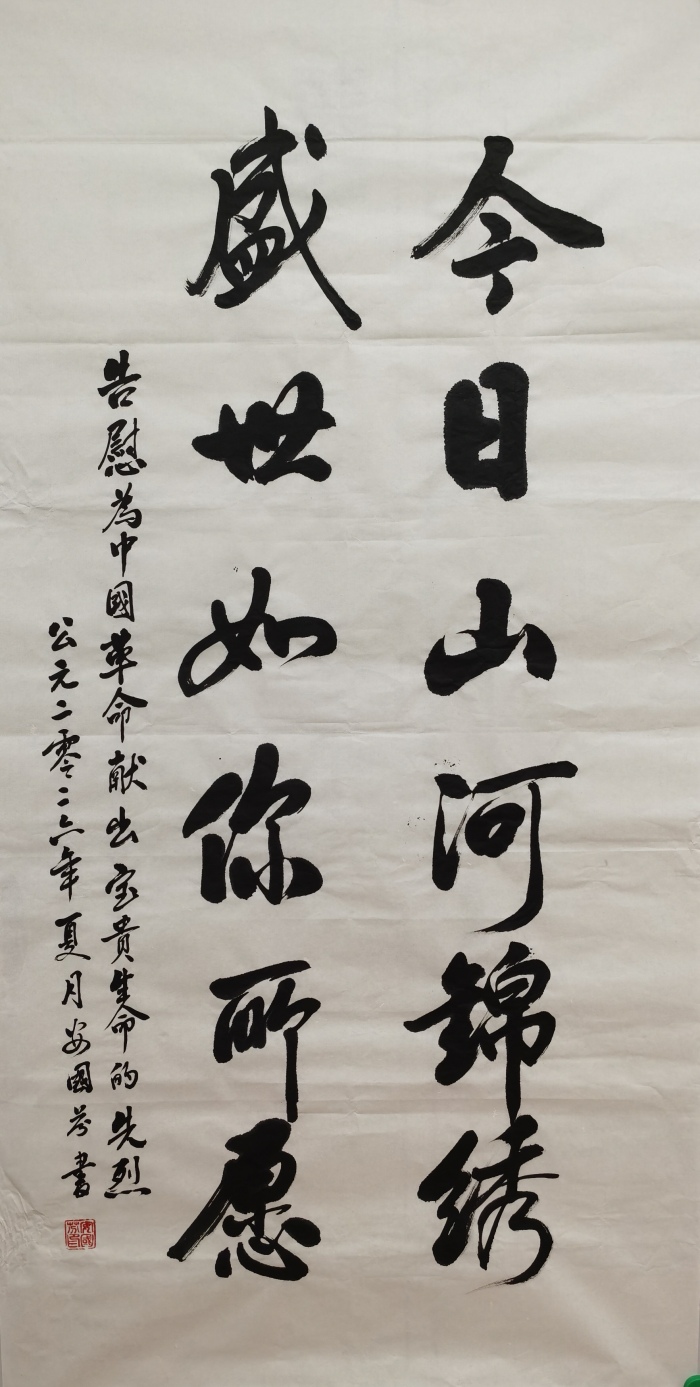 今日山河錦绣
盛世如你所愿
告慰為中國革命献出宝贵生命的先烈
公元二零二六年夏月安國芬書